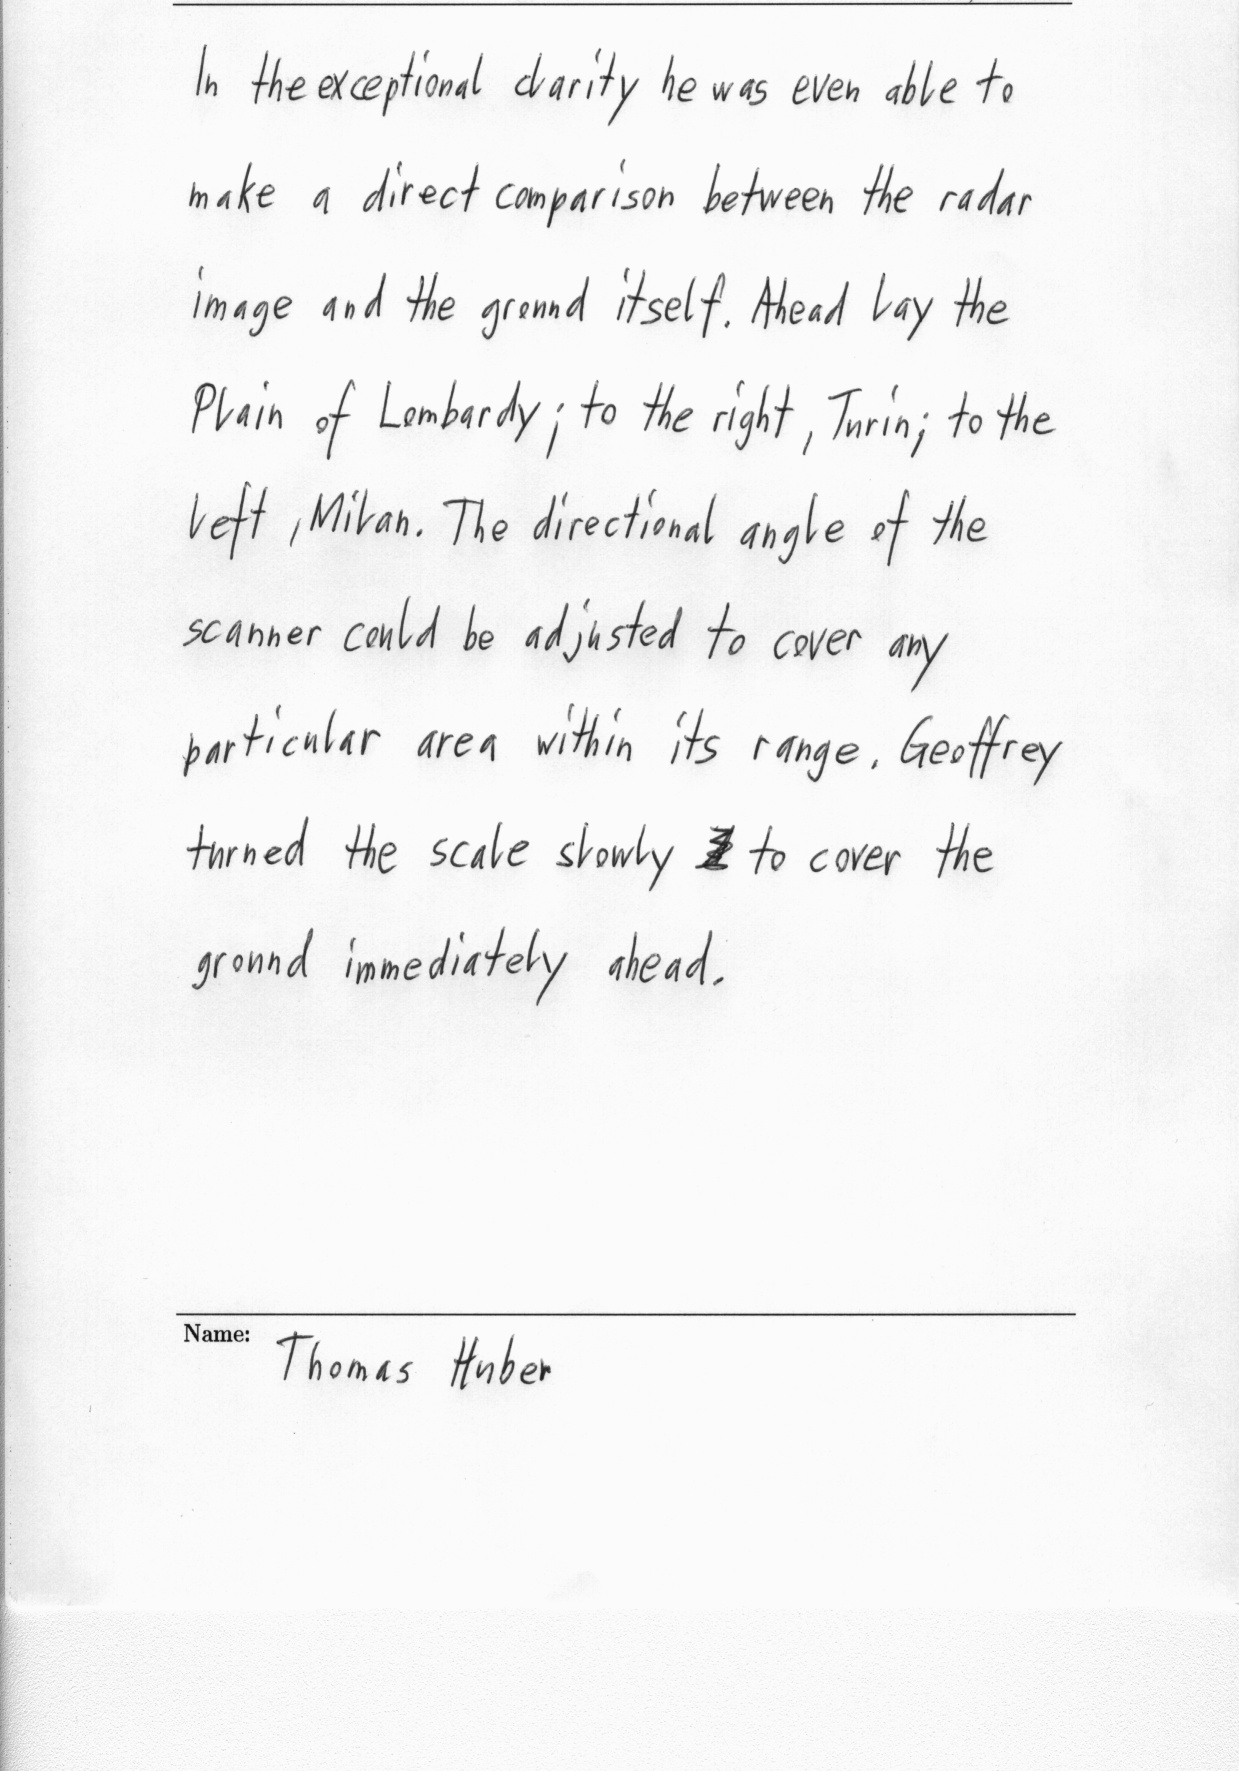 In the exceptional clarity he was even able to
make a direct comparison between the radar
image and the ground itself. Ahead lay the
Plain of Lombardy; to the right, Turin; to the
left, Milan. The directional angle of the
scanner could be adjusted to cover any
particular area within its range. Geoffrey
turned the scale slowly to cover the
ground immediately ahead.
Name: Thomas Huber